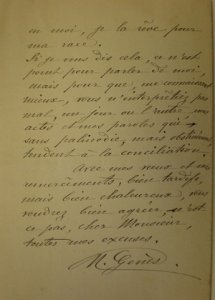 en moi, je la rêve pour
ma race.
Si je vous dis cela, ce n'est
point pour parler de moi,
mais pour que, me connaissant
mieux, vous n'interprétiez pas
mal, un jour ou l'autre, mes
actes et mes paroles qui
sans palinodie, mais obstinément,
tendent à la conciliation.
Avec mes vœux et mes
remerciements, bien tardifs,
mais bien chaleureux, vous
voudrez bien agréer, n'est
ce pas, cher Monsieur,
toutes mes excuses.